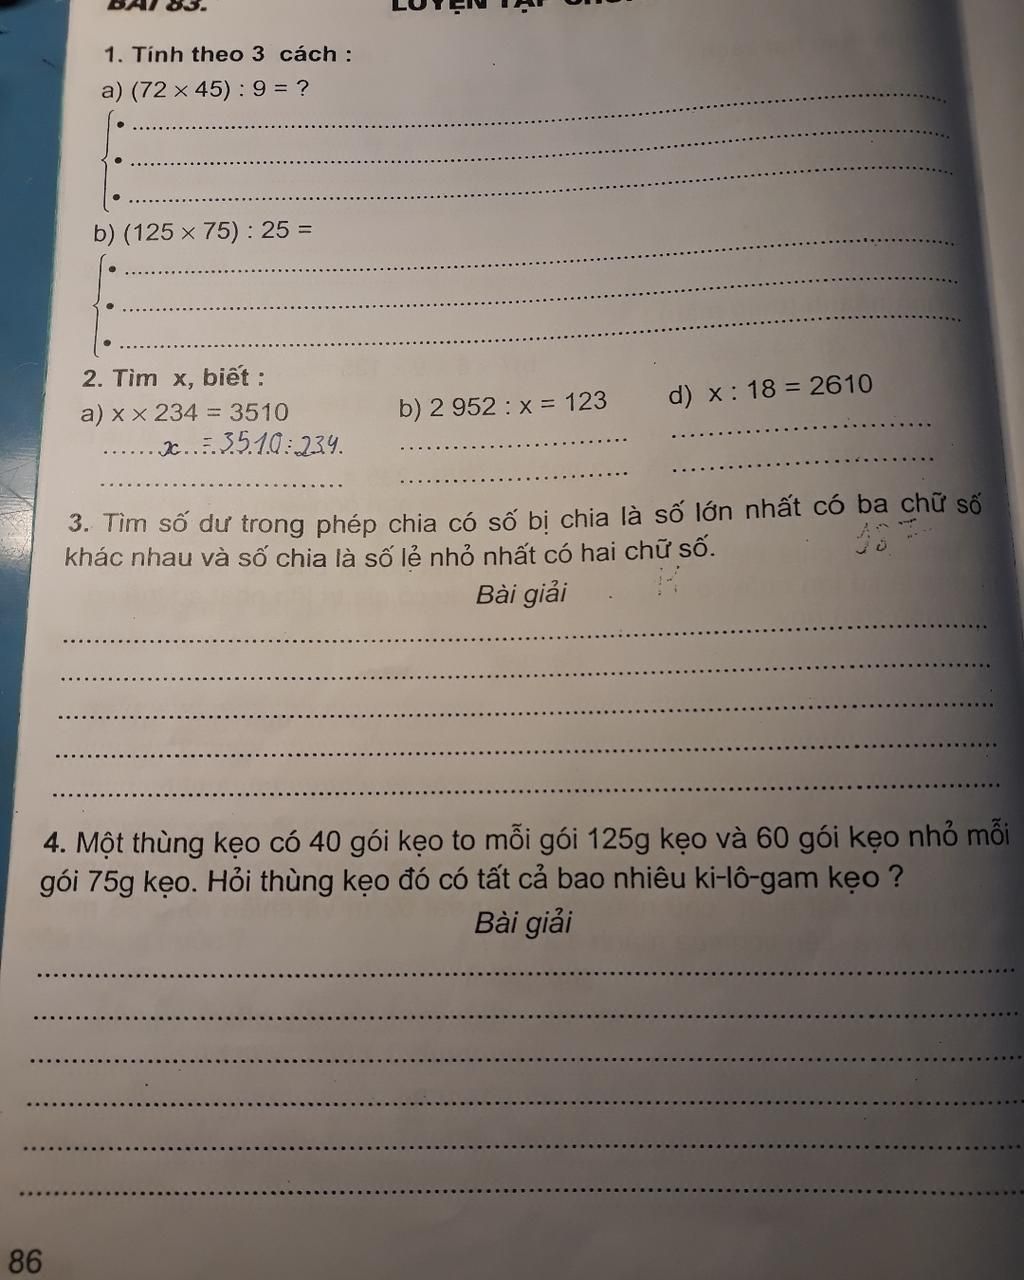 BÀI 83.
LUYỆN TẬP
1. Tính theo 3 cách :
a) (72 × 45) : 9 = ?
b) (125 × 75) : 25 =
2. Tìm x, biết :
a) x × 234 = 3510 b) 2 952 : x = 123 d) x : 18 = 2610
x = 3510 : 234.
3. Tìm số dư trong phép chia có số bị chia là số lớn nhất có ba chữ số
khác nhau và số chia là số lẻ nhỏ nhất có hai chữ số.
Bài giải
4. Một thùng kẹo có 40 gói kẹo to mỗi gói 125g kẹo và 60 gói kẹo nhỏ mỗi
gói 75g kẹo. Hỏi thùng kẹo đó có tất cả bao nhiêu ki-lô-gam kẹo ?
Bài giải
86